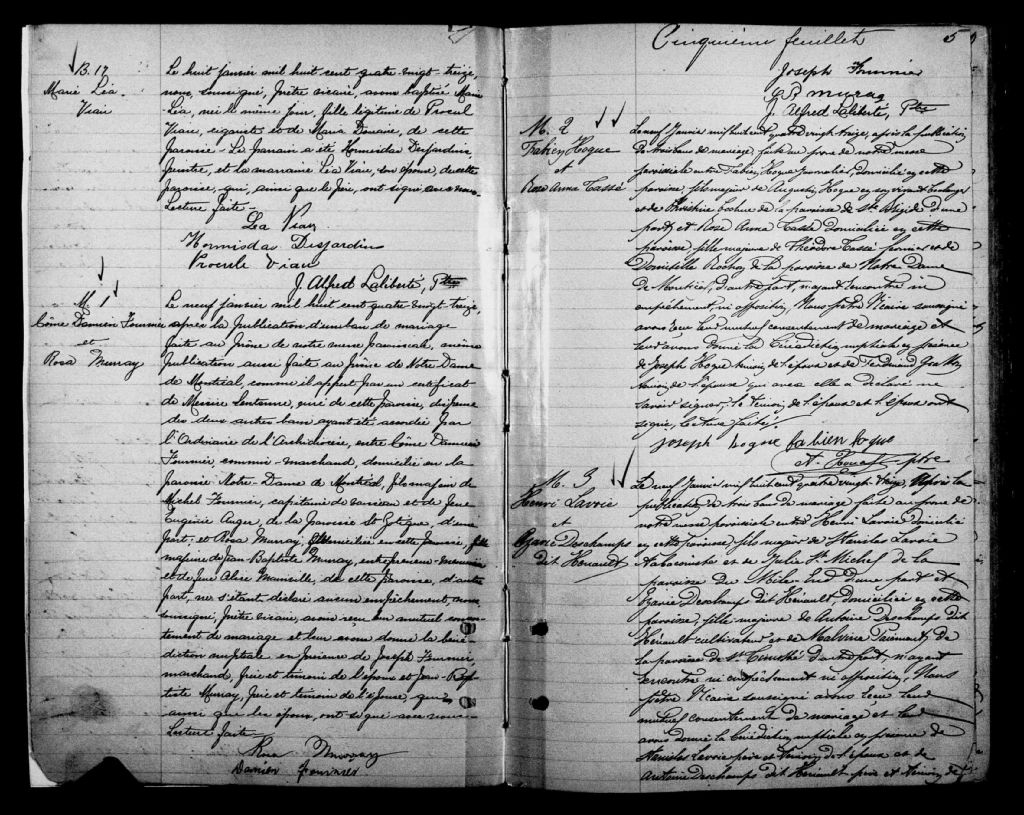 B. 17
Marie Léa
Viau
Le huit janvier mil huit cent quatre-vingt-treize,
nous, soussigné, prêtre vicaire, avons baptisé Marie
Léa, née le même jour, fille légitime de Procul
Viau, et de Maria Donaire, de cette
paroisse. Le parrain a été Hormisdas Desjardins,
peintre, et la marraine Léa Viau, son épouse, de cette
paroisse, qui, ainsi que le père, ont signé avec nous.
Lecture faite.
Léa Viau
Hormisdas Desjardins
Procule Viau
J. Alfred Laliberté, Ptre
M. 1
Côme Damien Fournier
et
Rosa Murray
Le neuf janvier mil huit cent quatre-vingt-treize,
après la publication d'un ban de mariage
faite au prône de notre messe paroissiale, même
publication aussi faite au prône de Notre Dame
de Montréal, comme il appert par un certificat
de Messire Sentenne, curé de cette paroisse, dispense
des deux autres bans ayant été accordée par
l'Ordinaire de l'Archidiocèse, entre Côme Damien
Fournier, commis-marchand, domicilié en la
paroisse Notre-Dame de Montréal, fils majeur de
Michel Fournier, capitaine de vaisseau et de feue
Eugénie Auger, de la paroisse St Zotique, d'une
part; et Rosa Murray, domiciliée en cette paroisse, fille
majeure de Jean Baptiste Murray, entrepreneur-menuisier
et de feue Alice Mainville, de cette paroisse, d'autre
part, ne s'étant déclaré aucun empêchement, nous,
soussigné, prêtre vicaire, avons reçu leur mutuel consen-
tement de mariage et leur avons donné la béné-
diction nuptiale en présence de Joseph Fournier,
marchand, frère et témoin de l'époux et Jean-Bap-
tiste Murray, père et témoin de l'épouse, qui,
ainsi que les époux, ont signé avec nous.
Lecture faite.
Rosa Murray
Damien Fournier
Cinquième feuillet
5
Joseph Fournier
J B Murray
J. Alfred Laliberté, Ptre
M. 2
Fabien Hogue
et
Rose Anna Cassé
Le neuf Janvier mil huit cent quatre vingt treize, après la publication
de trois bans de mariage, faite au prone de notre messe
paroissiale entre Fabien Hogue journalier, domicilié en cette
paroisse, fils majeur de Augustin Hogue en son vivant
et de Christine de la paroisse de Ste Brigide d'une
part, et Rose Anna Cassé domiciliée en cette
paroisse, fille majeure de Théodore Cassé fermier et de
Domitille Rochon de la paroisse de Notre Dame
de Montréal, d'autre part, n'ayant rencontré ni
empêchement, ni opposition, Nous prêtre Vicaire soussigné
avons reçu leur mutuel consentement de mariage et
leur avons donné la bénédiction nuptiale en présence
de Joseph Hogue témoin de l'époux et de Ferdinand
témoin de l'épouse qui avec elle a déclaré ne
savoir signer, le témoin de l'époux et l'époux ont
signé, lecture faite.
Joseph Hogue Fabien Hogue
ptre
M. 3
Henri Lavoie
et
Ozanie Deschamps
dit Hénault
Le neuf Janvier mil huit cent quatre vingt treize, Après la
publication de trois bans de mariage faite au prone de
notre messe paroissiale entre Henri Lavoie domicilié
en cette paroisse, fils majeur de Stanislas Lavoie
et de Julie St Michel de la
paroisse de Mile-End d'une part et
Ozanie Deschamps dit Hénault, domiciliée en cette
paroisse, fille majeure de Antoine Deschamps dit
Hénault cultivateur et de Malvina de
la paroisse de St Timothé d'autre part, n'ayant
rencontré ni empêchement ni opposition, Nous
prêtre Vicaire soussigné avons reçu leur
mutuel consentement de mariage et leur
avons donné la bénédiction nuptiale en présence de
Stanislas Lavoie père et témoin de l'époux et de
Antoine Deschamps dit Hénault père et témoin de